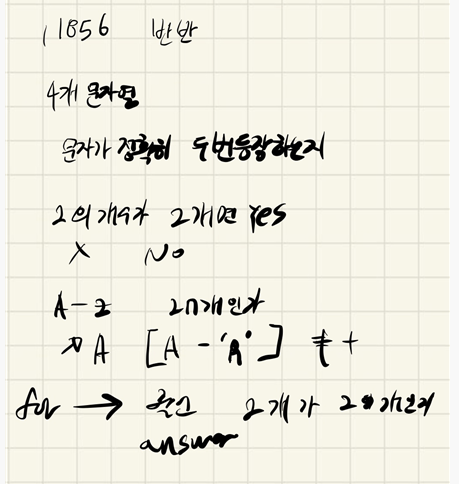 11856 반반
4개 문자열
문자가 정확히 두번등장하는지
2의개수가 2개면 yes
X No
A-z 2개인가
A [A - 'A'] ++
for → 2개가 2개인지
answer